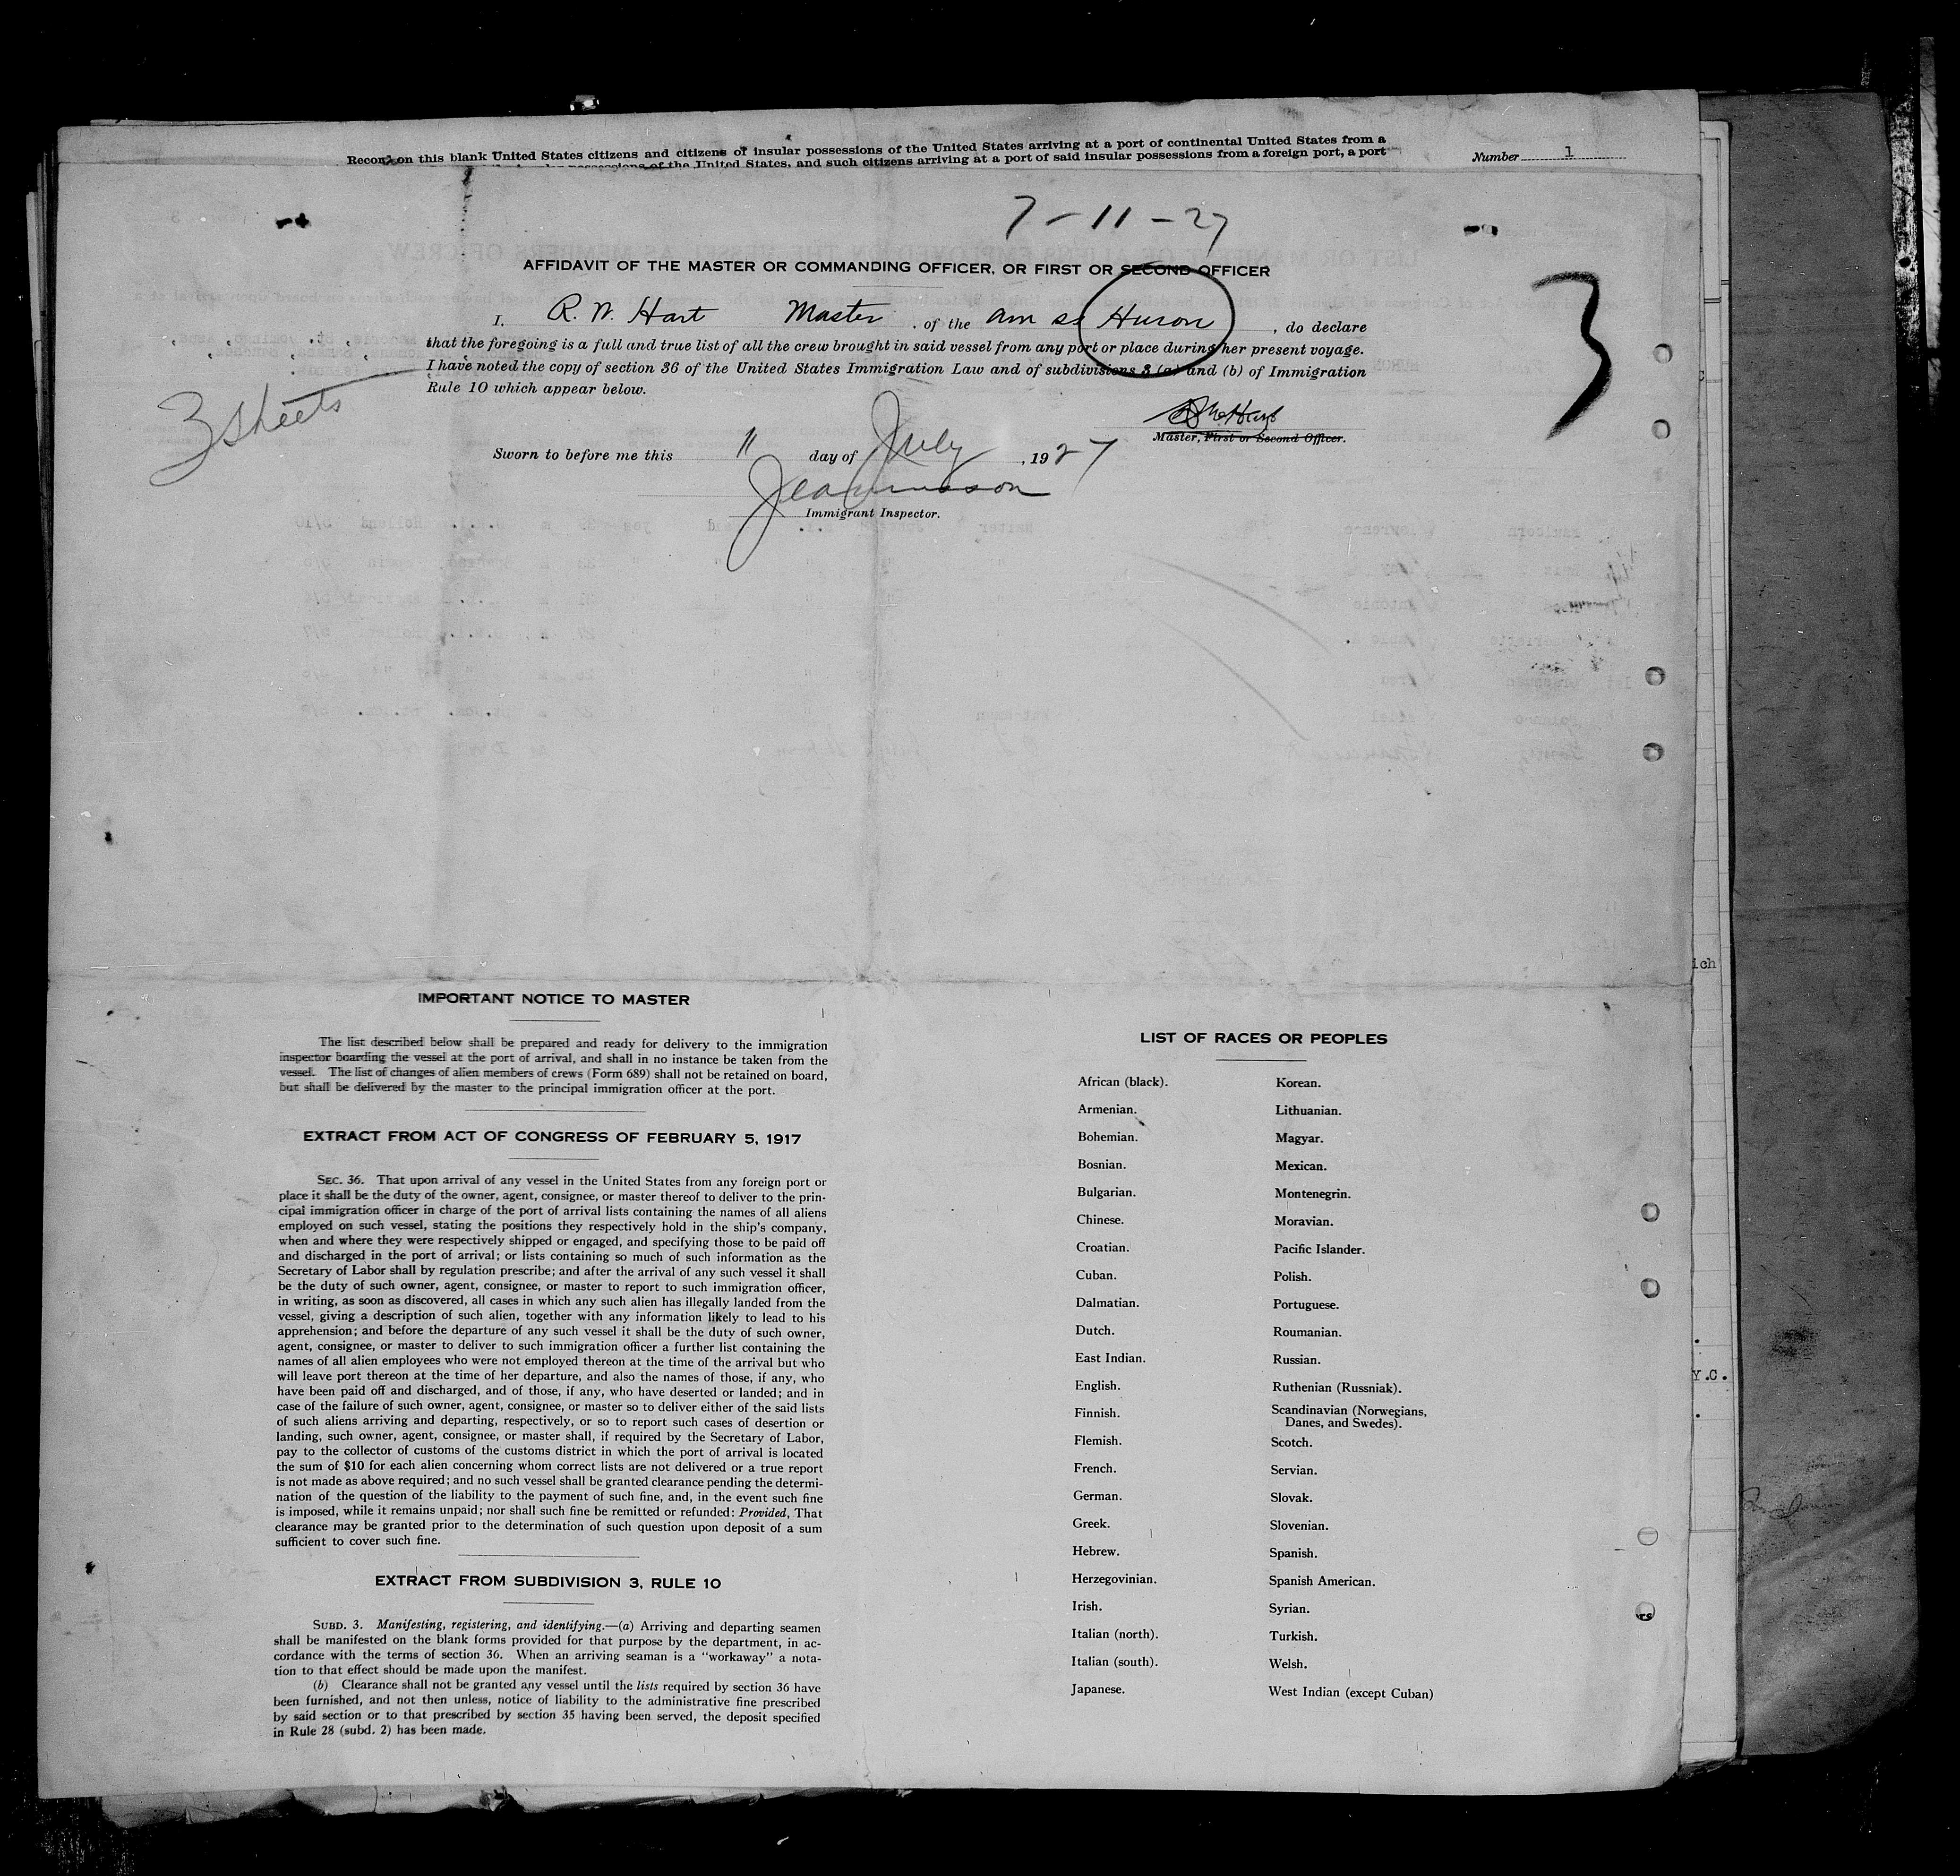 Record on this blank United States citizens and citizens of insular possessions of the United States arriving at a port of continental United States from a
possessions of the United States, and such citizens arriving at a port of said insular possessions from a foreign port, a port
Number 1
7-11-27
AFFIDAVIT OF THE MASTER OR COMMANDING OFFICER, OR FIRST OR SECOND OFFICER
I, R. W. Hart Master, of the Am ss Huron, do declare
that the foregoing is a full and true list of all the crew brought in said vessel from any port or place during her present voyage.
I have noted the copy of section 36 of the United States Immigration Law and of subdivisions 3 (a) and (b) of Immigration
Rule 10 which appear below.
3
3 sheets
Master, First or Second Officer.
Sworn to before me this 11 day of July, 1927
Immigrant Inspector.
ich
Y.C.
rs
IMPORTANT NOTICE TO MASTER
The list described below shall be prepared and ready for delivery to the immigration
inspector boarding the vessel at the port of arrival, and shall in no instance be taken from the
vessel. The list of changes of alien members of crews (Form 689) shall not be retained on board,
but shall be delivered by the master to the principal immigration officer at the port.
EXTRACT FROM ACT OF CONGRESS OF FEBRUARY 5, 1917
SEC. 36. That upon arrival of any vessel in the United States from any foreign port or
place it shall be the duty of the owner, agent, consignee, or master thereof to deliver to the prin-
cipal immigration officer in charge of the port of arrival lists containing the names of all aliens
employed on such vessel, stating the positions they respectively hold in the ship's company,
when and where they were respectively shipped or engaged, and specifying those to be paid off
and discharged in the port of arrival; or lists containing so much of such information as the
Secretary of Labor shall by regulation prescribe; and after the arrival of any such vessel it shall
be the duty of such owner, agent, consignee, or master to report to such immigration officer,
in writing, as soon as discovered, all cases in which any such alien has illegally landed from the
vessel, giving a description of such alien, together with any information likely to lead to his
apprehension; and before the departure of any such vessel it shall be the duty of such owner,
agent, consignee, or master to deliver to such immigration officer a further list containing the
names of all alien employees who were not employed thereon at the time of the arrival but who
will leave port thereon at the time of her departure, and also the names of those, if any, who
have been paid off and discharged, and of those, if any, who have deserted or landed; and in
case of the failure of such owner, agent, consignee, or master so to deliver either of the said lists
of such aliens arriving and departing, respectively, or so to report such cases of desertion or
landing, such owner, agent, consignee, or master shall, if required by the Secretary of Labor,
pay to the collector of customs of the customs district in which the port of arrival is located
the sum of $10 for each alien concerning whom correct lists are not delivered or a true report
is not made as above required; and no such vessel shall be granted clearance pending the determi-
nation of the question of the liability to the payment of such fine, and, in the event such fine
is imposed, while it remains unpaid; nor shall such fine be remitted or refunded: Provided, That
clearance may be granted prior to the determination of such question upon deposit of a sum
sufficient to cover such fine.
EXTRACT FROM SUBDIVISION 3, RULE 10
SUBD. 3. Manifesting, registering, and identifying.—(a) Arriving and departing seamen
shall be manifested on the blank forms provided for that purpose by the department, in ac-
cordance with the terms of section 36. When an arriving seaman is a "workaway" a nota-
tion to that effect should be made upon the manifest.
(b) Clearance shall not be granted any vessel until the lists required by section 36 have
been furnished, and not then unless, notice of liability to the administrative fine prescribed
by said section or to that prescribed by section 35 having been served, the deposit specified
in Rule 28 (subd. 2) has been made.
LIST OF RACES OR PEOPLES
African (black).
Armenian.
Bohemian.
Bosnian.
Bulgarian.
Chinese.
Croatian.
Cuban.
Dalmatian.
Dutch.
East Indian.
English.
Finnish.
Flemish.
French.
German.
Greek.
Hebrew.
Herzegovinian.
Irish.
Italian (north).
Italian (south).
Japanese.
Korean.
Lithuanian.
Magyar.
Mexican.
Montenegrin.
Moravian.
Pacific Islander.
Polish.
Portuguese.
Roumanian.
Russian.
Ruthenian (Russniak).
Scandinavian (Norwegians,
Danes, and Swedes).
Scotch.
Servian.
Slovak.
Slovenian.
Spanish.
Spanish American.
Syrian.
Turkish.
Welsh.
West Indian (except Cuban)